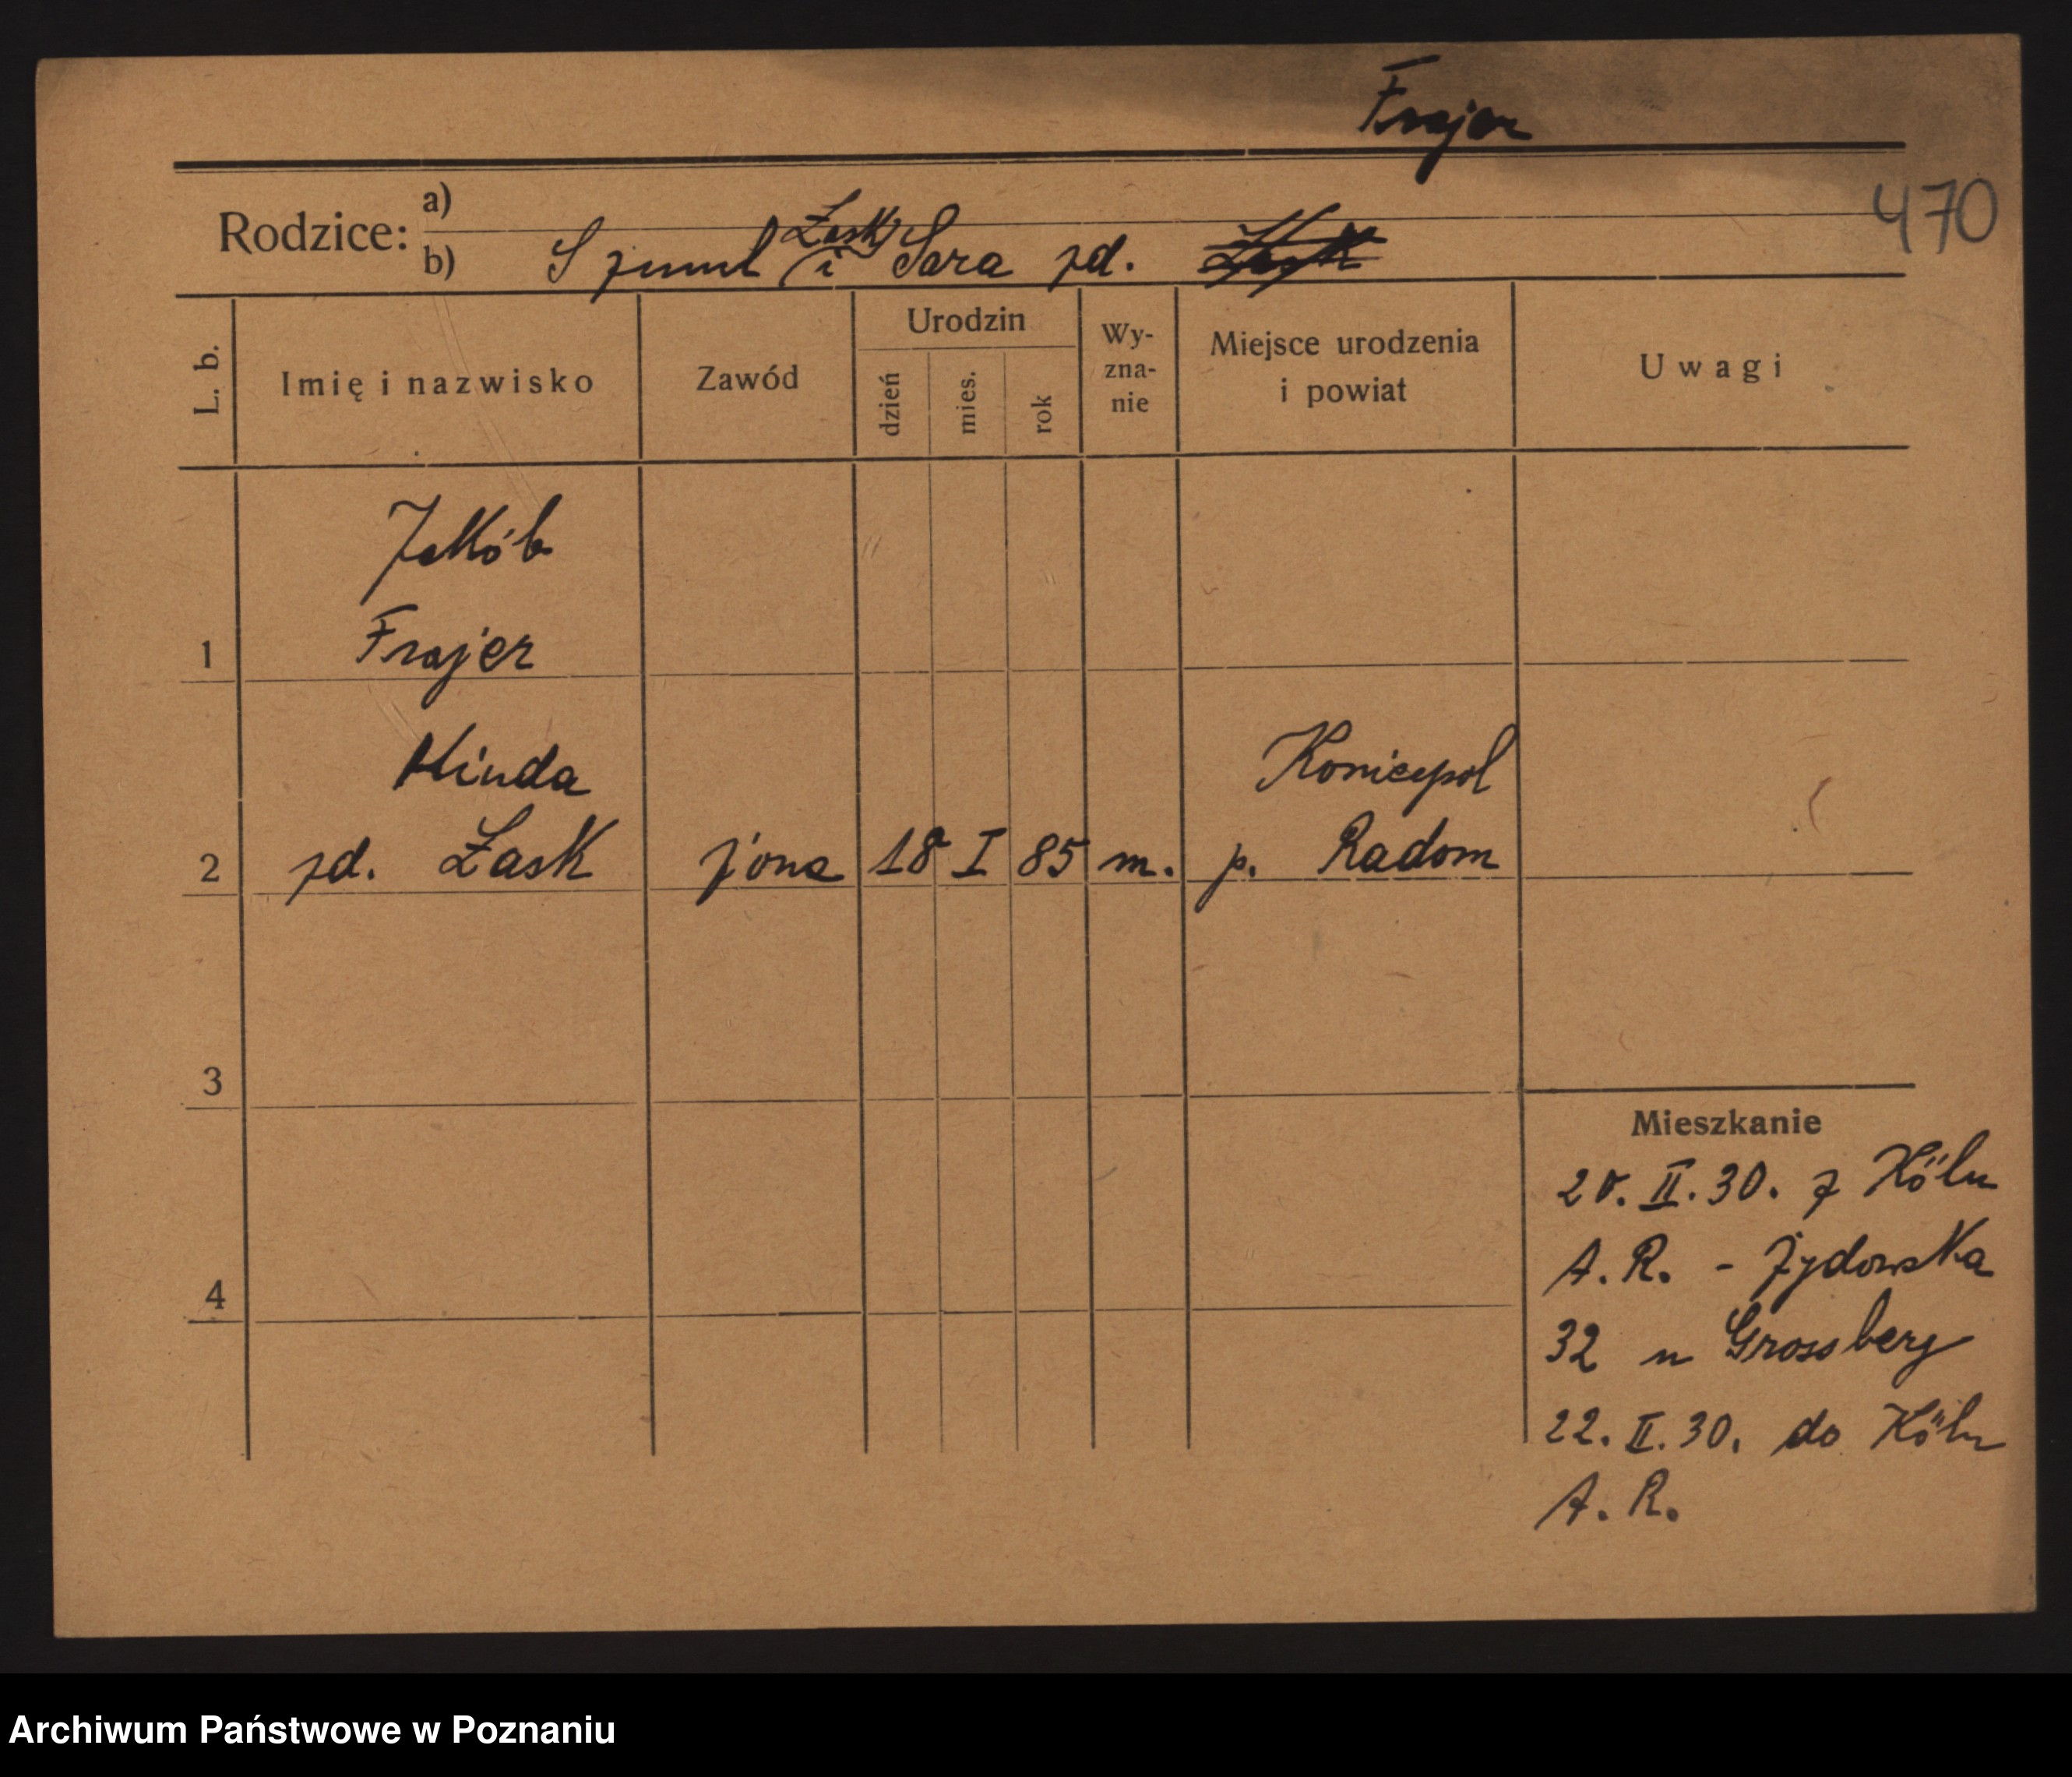 Frajer
470
Rodzice: a)
b) Szmul Żask i Sara zd. Żask
L. b. Imię i nazwisko Zawód Urodzin dzień mies. rok Wyznanie Miejsce urodzenia i powiat Uwagi
Jakób
1 Frajer
Hinda Koniecpol
2 zd. Żask żona 18 I 85 m. p. Radom
3
Mieszkanie
20. II. 30. z Köln
A. R. - Żydowska
4
32 u Grossberg
22. II. 30. do Köln
A. R.
Archiwum Państwowe w Poznaniu